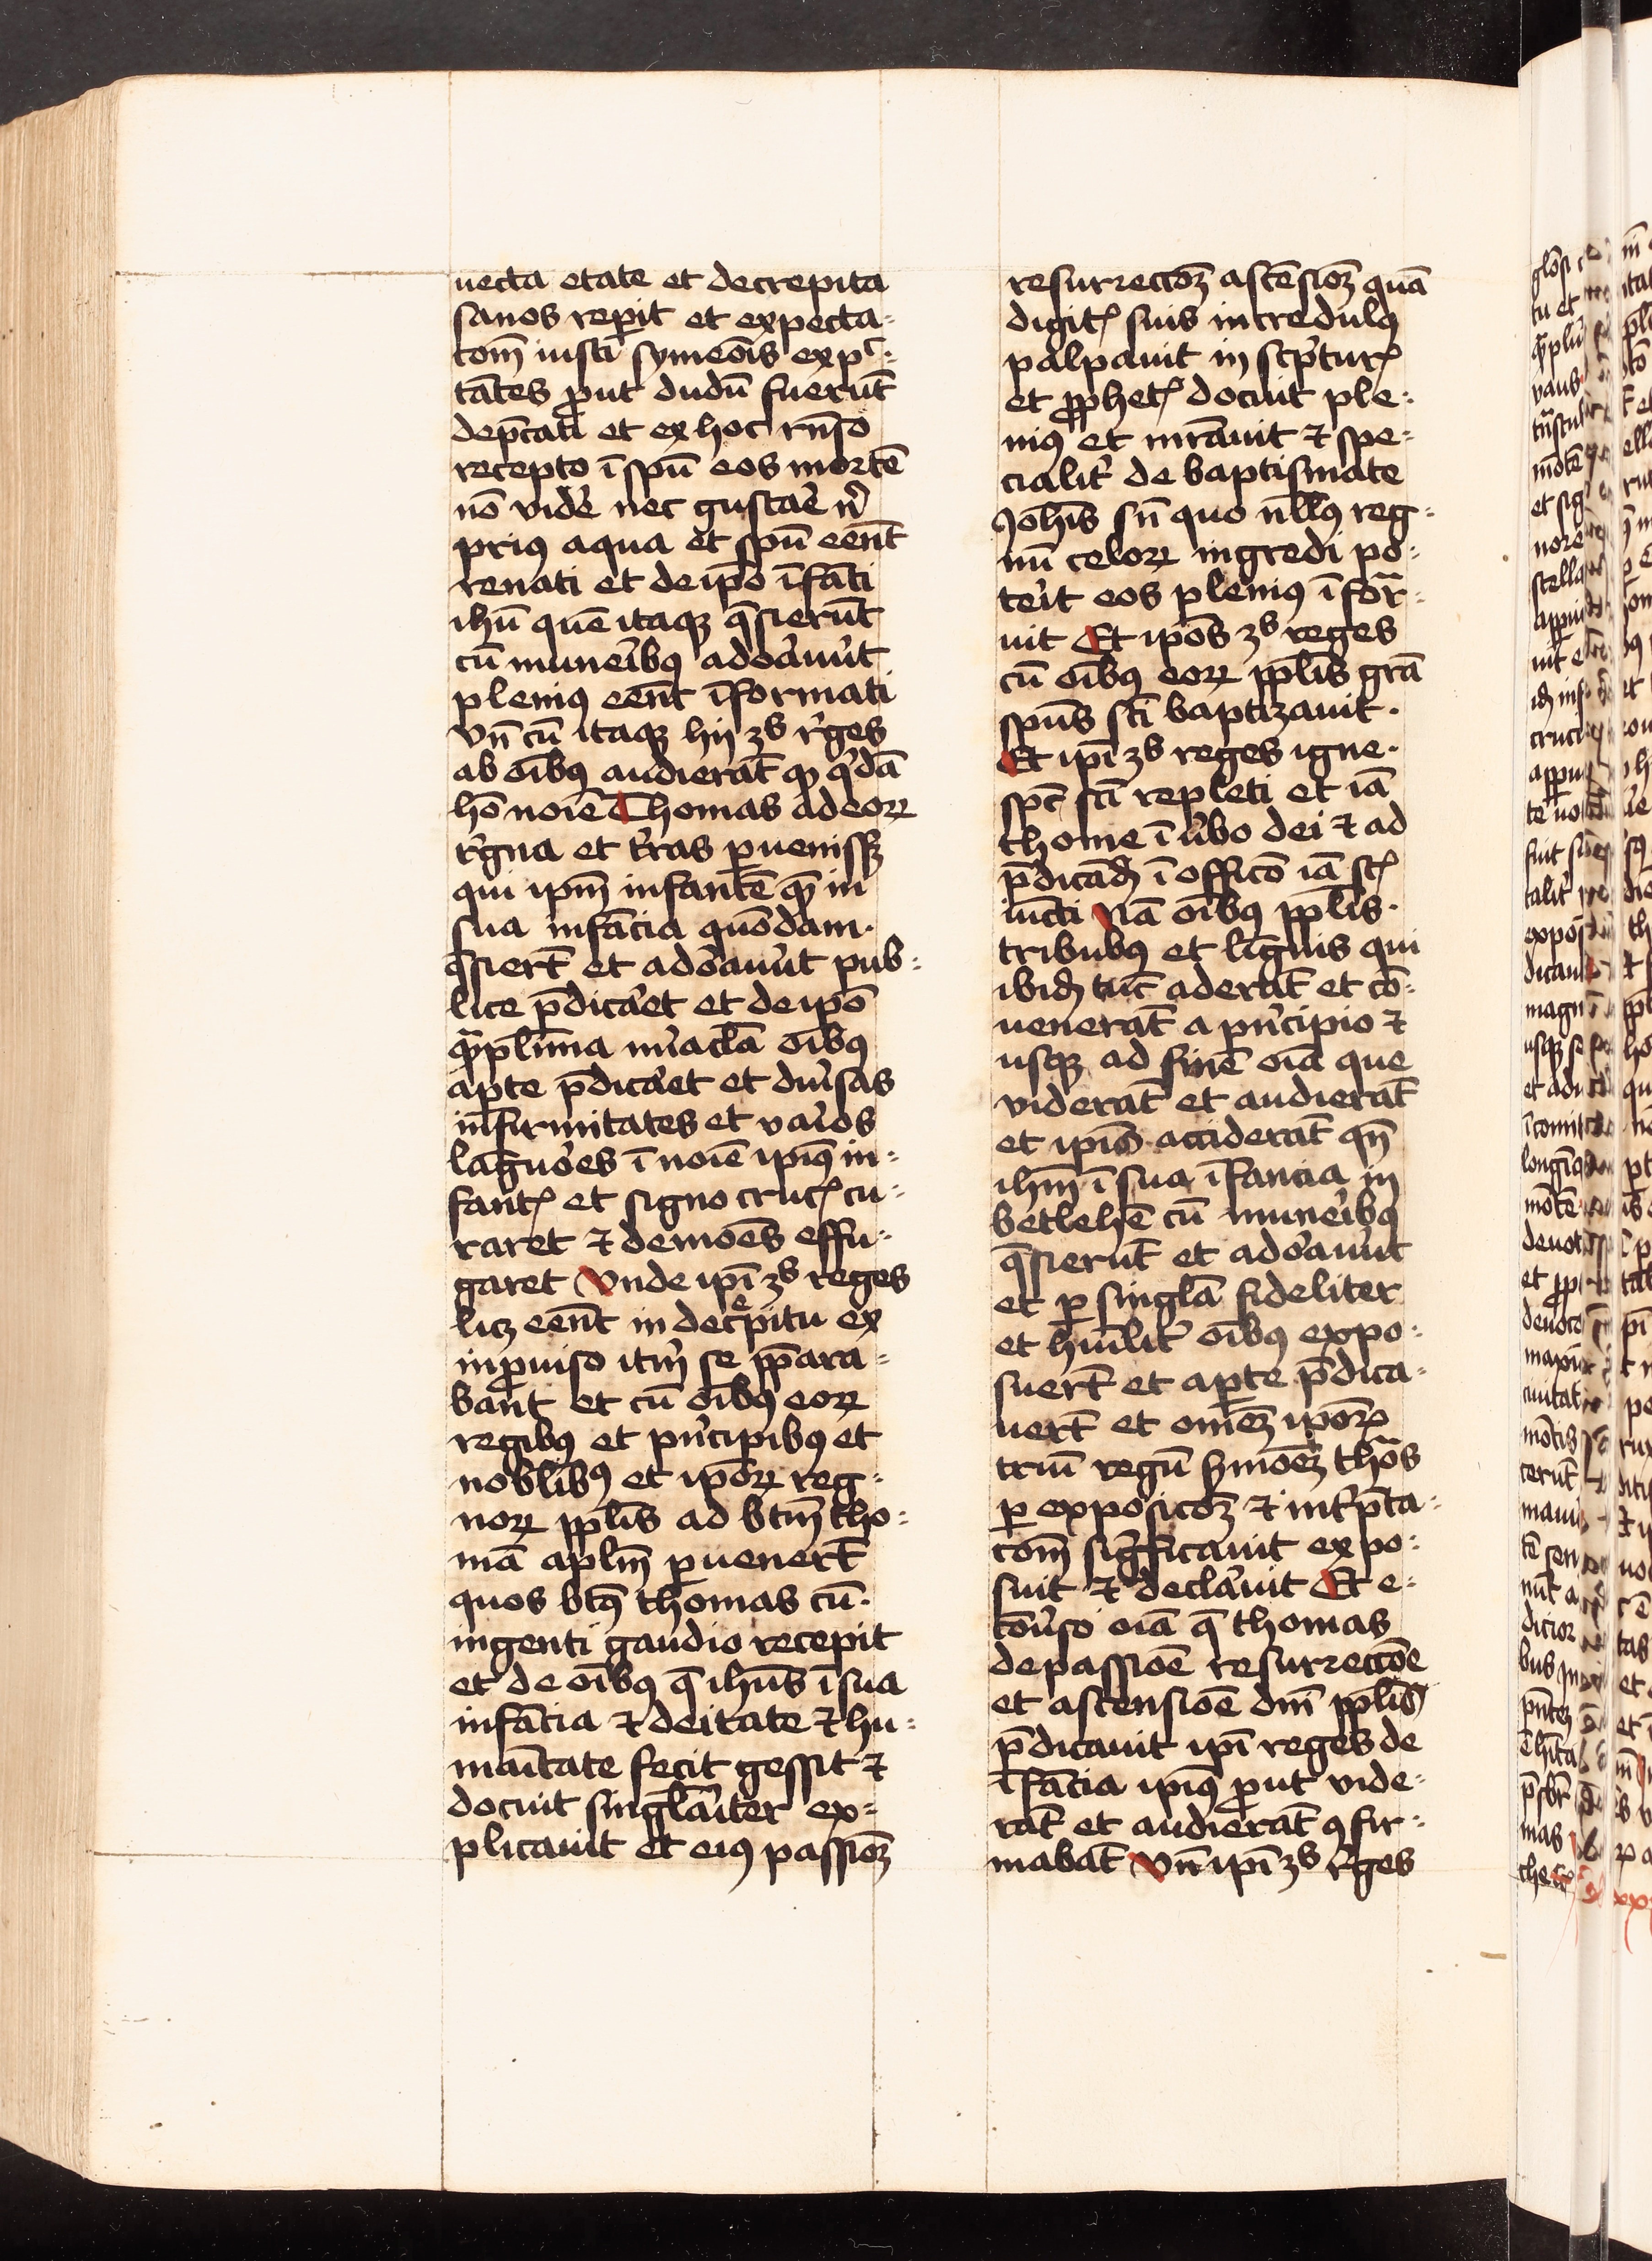 uecta etate et decrepita
sanos repit et expecta-
com̄ iusti symeōis expc-
tātes ꝓut dudū fuerūt
dep̄cati et ex hoc rn̄so
recepto ī spū eos mortē
nō vide᷑ nec gustae᷑ n᷑
priꝰ aqua et spū eēnt
renati et de ip̄o īfāti
ihū quē itaqꝫ q̄sierūt
cū munei᷑bꝰ adoa᷑uūt
pleniꝰ eēnt īformati
Vn̄ cū itaqꝫ hij ꝫs r᷑ges
ab oībꝰ audierāt ꝙ q᷑dā
hō noīe Thomas ad eoꝝ
r᷑gna et t᷑ras ꝑuenissꝫ
qui ip̄m infantē quē in
sua infācia quōdam
q̄siert̄ et adoa᷑uūt pub-
lice p̄dicae᷑t et de ip̄o
qᷓplīma mi᷑acl̄a oībꝰ
apte p̄dicae᷑t et diu᷑sas
infirmitates et vai᷑os
lāguoe᷑s ī noīe ipīꝰ in-
fantꝭ et signo crucꝭ cu-
raret ⁊ demoēs effu-
garet Vnde ipī ꝫs reges
licꝫ eēnt in dec᷑pitu ex
inꝓuiso itm̄ se p̄para-
bānt et cū oībꝰ eoꝝ
regibꝰ et pn᷑cipibꝰ et
nobl̄ibꝰ et ip̄oꝝ reg-
noꝝ ppl̄is ad btm̄ tho-
mā apl̄m ꝑuenert̄
quos btꝰ thomas cū
ingenti gaudio recepit
et de oībꝰ q̄ ihūs ī sua
infācia ⁊ deitate ⁊ hu-
maītate fecit gessit ⁊
docuit singl̄aiter ex-
plicauit et eiꝰ passioꝫ
resurrectōꝫ ascēsioꝫ quā
digitꝭ suis incredulꝰ
palpauit in scp᷑turꝭ
et ꝓphetꝭ docuit ple-
niꝰ et inrāuit ⁊ spe-
cialit᷑ de baptismate
Joh̄is sn̄ quo nll̄ꝰ reg-
nū celoꝝ ingredi po-
tei᷑t eos pleniꝰ īfor-
uit Et ip̄os ꝫs reges
cū oībꝰ eoꝝ ppl̄is grā
spūs sc̄i baptizauit
Et ipī ꝫs reges igne
spc̄ sc̄i repleti et iā
thome ī u᷑bo dei ⁊ ad
p̄dicādꝫ ī officō iā sctꝭ
iūcti Nā oībꝰ ppl̄is
tribubꝰ et līguis qui
ibidꝫ tūc aderāt et cō-
uenerāt a pn᷑cipio ⁊
usqꝫ ad finē oīa que
viderāt et audierāt
et ipīs acciderāt qn̄
ihm̄ ī sua īfancia in
betlehē cū munei᷑bꝰ
q̄sierūt et adoa᷑uūt
et ꝑ singl̄a fideliter
et humīlit᷑ oībꝰ expo-
suert̄ et apte p̄dica-
uert̄ et omēꝫ ip̄oꝝ
triū regū s᷑moēꝫ thōs
ꝑ expōsicōꝫ ⁊ int᷑p̄ta-
com̄ sig᷑ficauit expo-
suit ⁊ decla᷑uit Et e-
cōu᷑so oīa q̄ thomas
de passiōe resurrectōe
et ascensiōe dnī ppl̄is
p̄dicauit ipī reges de
īfācia ipīꝰ ꝓut vide-
rāt et audierāt ꝯfir-
mabāt Vn̄ ipī ꝫs r᷑ges